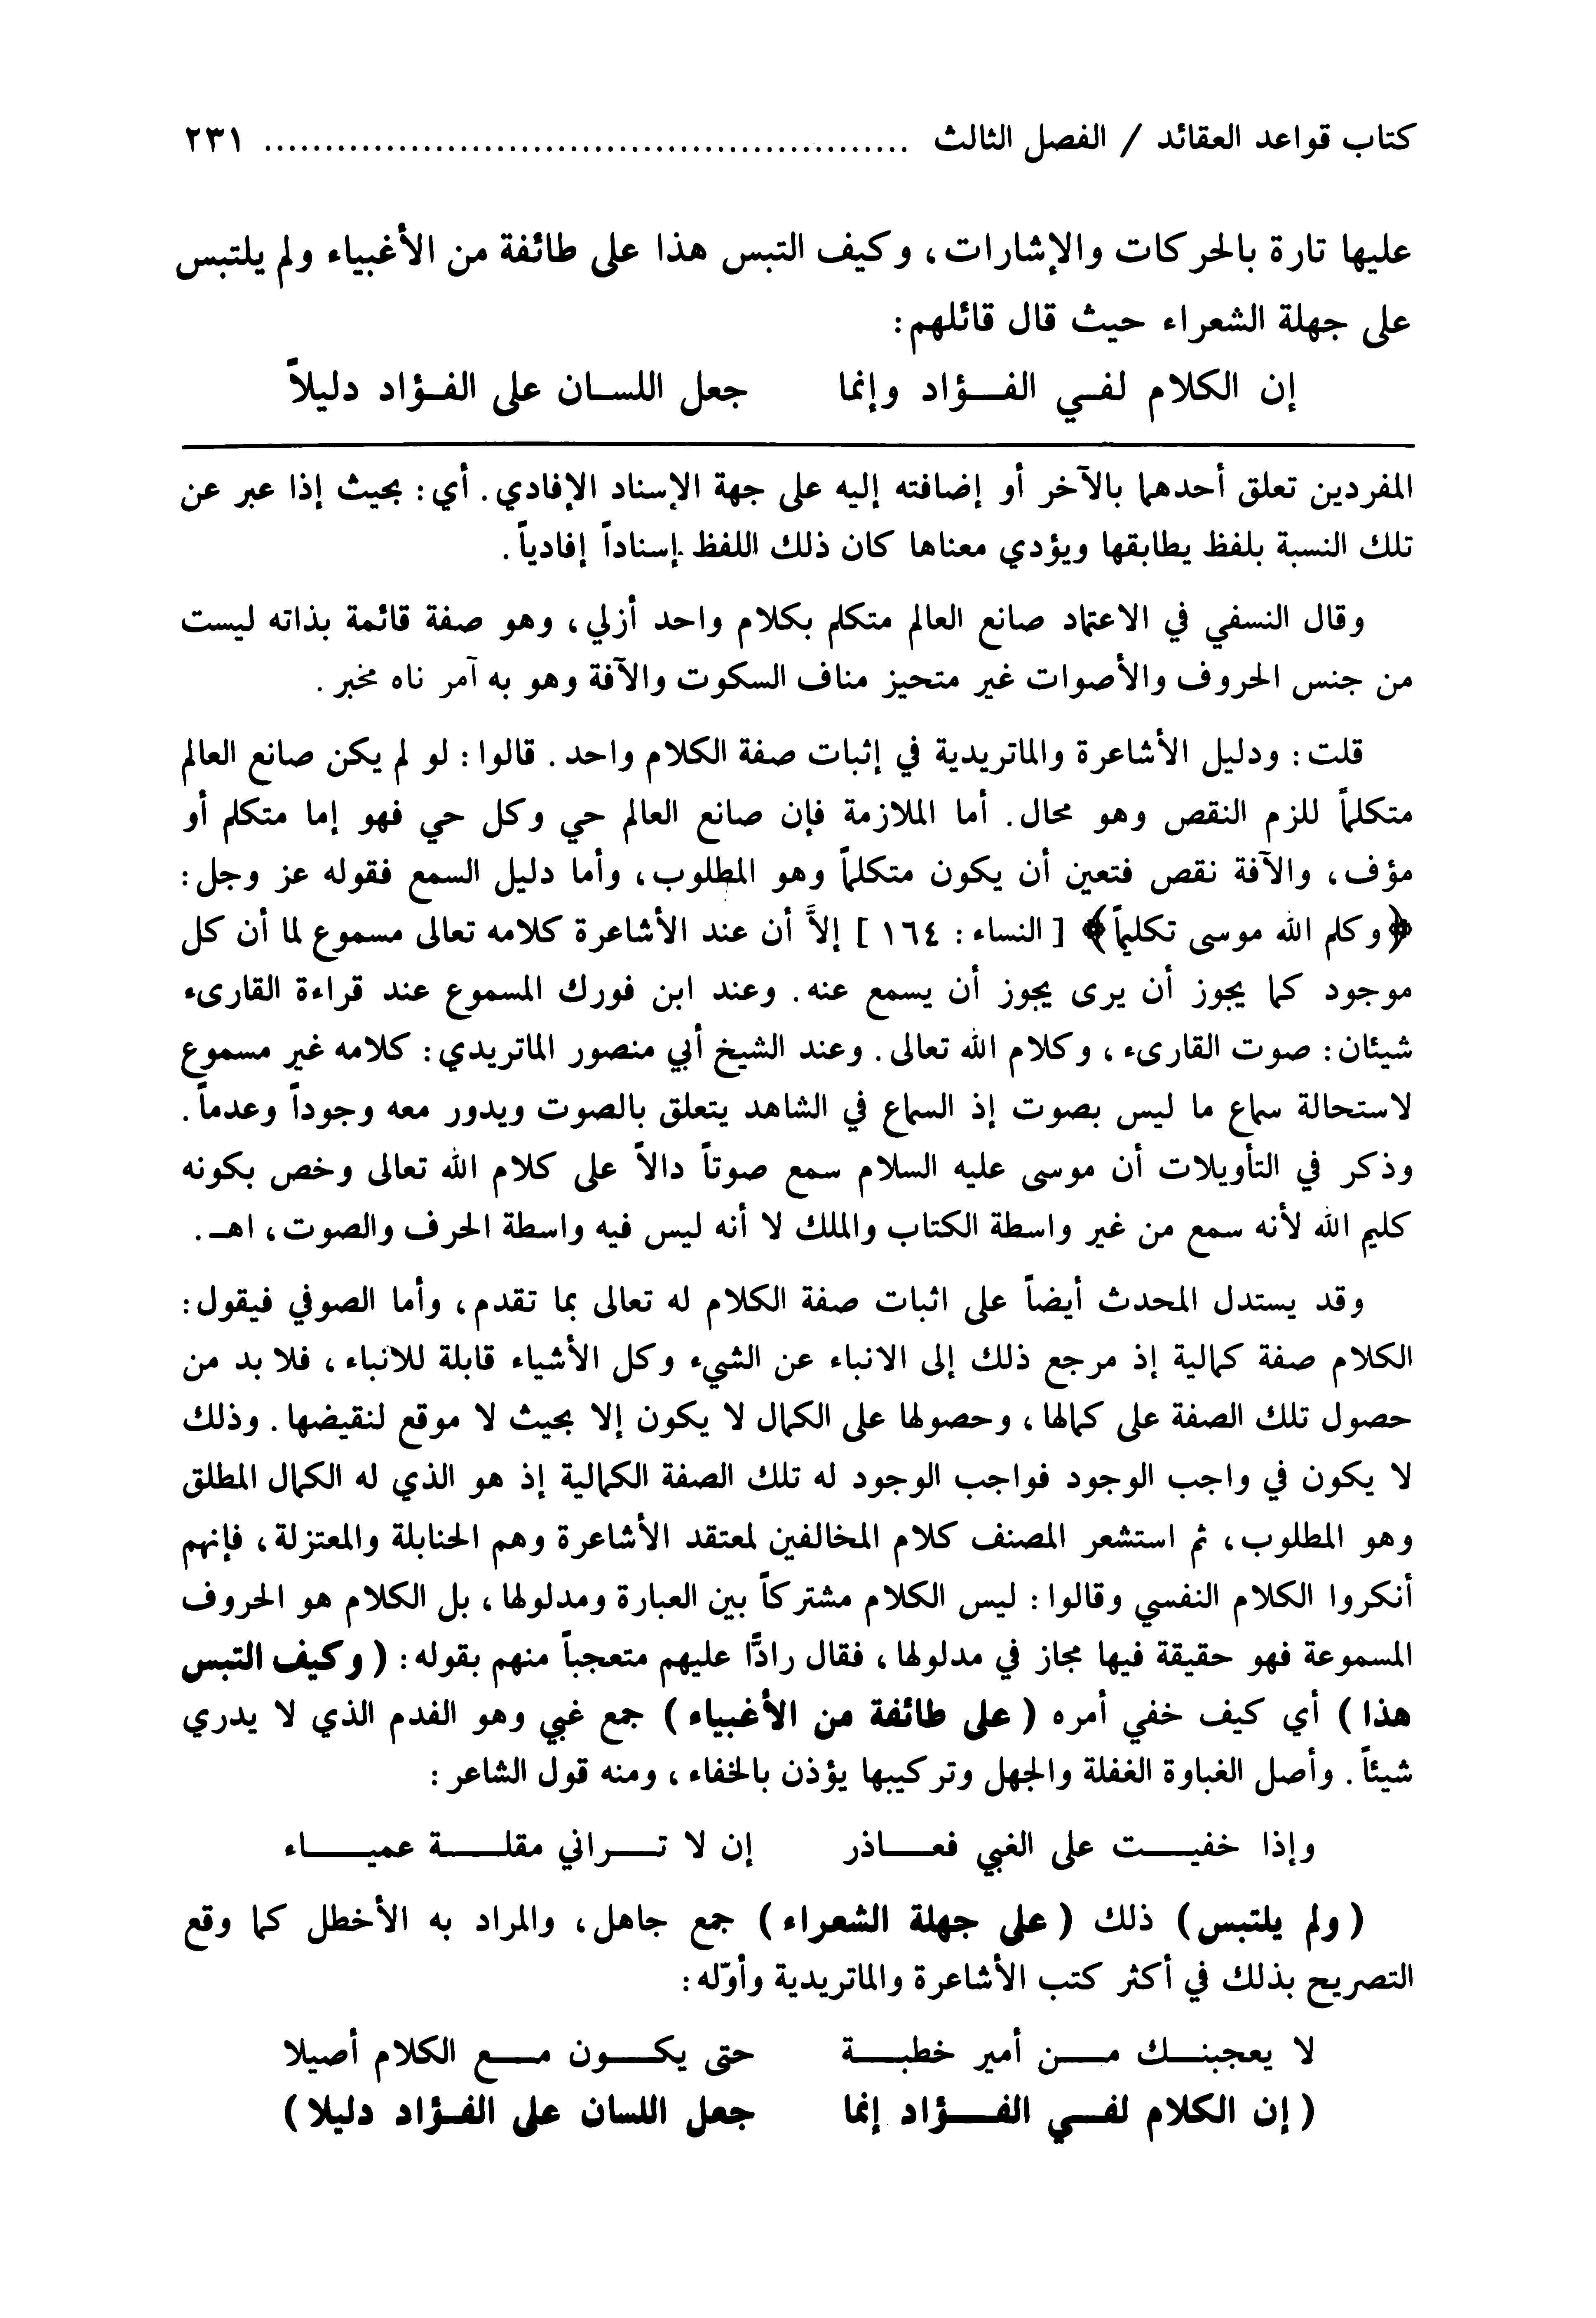 كتاب قواعد العقائد / الفصل الثالث ...................................................... ٢٣١
عليها تارة بالحركات والإشارات، وكيف التبس هذا على طائفة من الأغبياء ولم يلتبس
على جهلة الشعراء حيث قال قائلهم:
إن الكلام لفـي الفـؤاد وإنما جعل اللسـان على الفـؤاد دليلاً
المفردين تعلق أحدهما بالآخر أو إضافته إليه على جهة الإسناد الإفادي. أي: بحيث إذا عبر عن
تلك النسبة بلفظ يطابقها ويؤدي معناها كان ذلك اللفظ إسناداً إفادياً.
وقال النسفي في الاعتماد صانع العالم متكلم بكلام واحد أزلي، وهو صفة قائمة بذاته ليست
من جنس الحروف والأصوات غير متحيز مناف السكوت والآفة وهو به آمر ناه مخبر.
قلت: ودليل الأشاعرة والماتريدية في إثبات صفة الكلام واحد. قالوا: لو لم يكن صانع العالم
متكلماً للزم النقص وهو محال. أما الملازمة فإن صانع العالم حي وكل حي فهو إما متكلم أو
مؤف، والآفة نقص فتعين أن يكون متكلماً وهو المطلوب، وأما دليل السمع فقوله عز وجل:
﴿وكلم الله موسى تكليماً﴾ [ النساء: ١٦٤ ] إلاَّ أن عند الأشاعرة كلامه تعالى مسموع لما أن كل
موجود كما يجوز أن يرى يجوز أن يسمع عنه. وعند ابن فورك المسموع عند قراءة القارىء
شيئان: صوت القارىء، وكلام الله تعالى. وعند الشيخ أبي منصور الماتريدي: كلامه غير مسموع
لاستحالة سماع ما ليس بصوت إذ السماع في الشاهد يتعلق بالصوت ويدور معه وجوداً وعدماً.
وذكر في التأويلات أن موسى عليه السلام سمع صوتاً دالاً على كلام الله تعالى وخص بكونه
كليم الله لأنه سمع من غير واسطة الكتاب والملك لا أنه ليس فيه واسطة الحرف والصوت، اهـ.
وقد يستدل المحدث أيضاً على اثبات صفة الكلام له تعالى بما تقدم، وأما الصوفي فيقول:
الكلام صفة كمالية إذ مرجع ذلك إلى الانباء عن الشيء وكل الأشياء قابلة للانباء، فلا بد من
حصول تلك الصفة على كمالها، وحصولها على الكمال لا يكون إلا بحيث لا موقع لنقيضها. وذلك
لا يكون في واجب الوجود فواجب الوجود له تلك الصفة الكمالية إذ هو الذي له الكمال المطلق
وهو المطلوب، ثم استشعر المصنف كلام المخالفين لمعتقد الأشاعرة وهم الحنابلة والمعتزلة، فإنهم
أنكروا الكلام النفسي وقالوا: ليس الكلام مشتركاً بين العبارة ومدلولها، بل الكلام هو الحروف
المسموعة فهو حقيقة فيها مجاز في مدلولها، فقال رادًّا عليهم متعجباً منهم بقوله: (وكيف التبس
هذا) أي كيف خفي أمره (على طائفة من الأغبياء) جمع غبي وهو الفدم الذي لا يدري
شيئاً. وأصل الغباوة الغفلة والجهل وتركيبها يؤذن بالخفاء، ومنه قول الشاعر:
وإذا خفيـت على الغبي فعـاذر إن لا تـراني مقلـة عميـاء
(ولم يلتبس) ذلك (على جهلة الشعراء) جمع جاهل، والمراد به الأخطل كما وقع
التصريح بذلك في أكثر كتب الأشاعرة والماتريدية وأوّله:
لا يعجبنـك مـن أمير خطبـة حتى يكـون مـع الكلام أصيلا
(إن الكلام لفـي الفـؤاد إنما جعل اللسان على الفـؤاد دليلا)